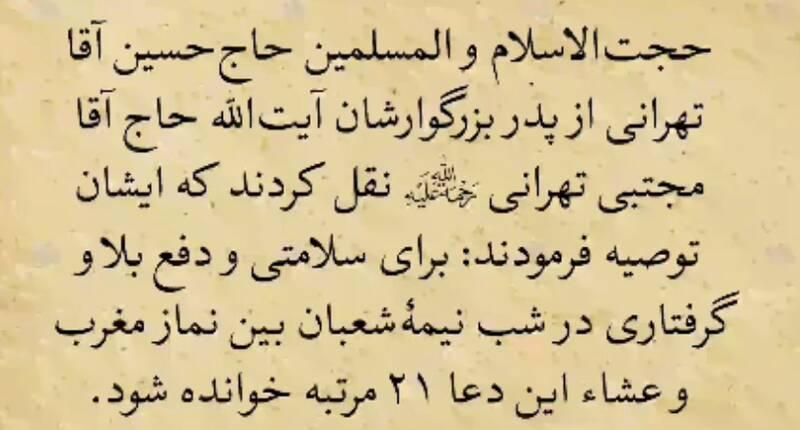 حجت‌الاسلام و المسلمین حاج حسین آقا
تهرانی از پدر بزرگوارشان آیت‌الله حاج آقا
مجتبی تهرانی رحمة‌الله‌علیه نقل کردند که ایشان
توصیه فرمودند: برای سلامتی و دفع بلا و
گرفتاری در شب نیمهٔ شعبان بین نماز مغرب
و عشاء این دعا ۲۱ مرتبه خوانده شود.